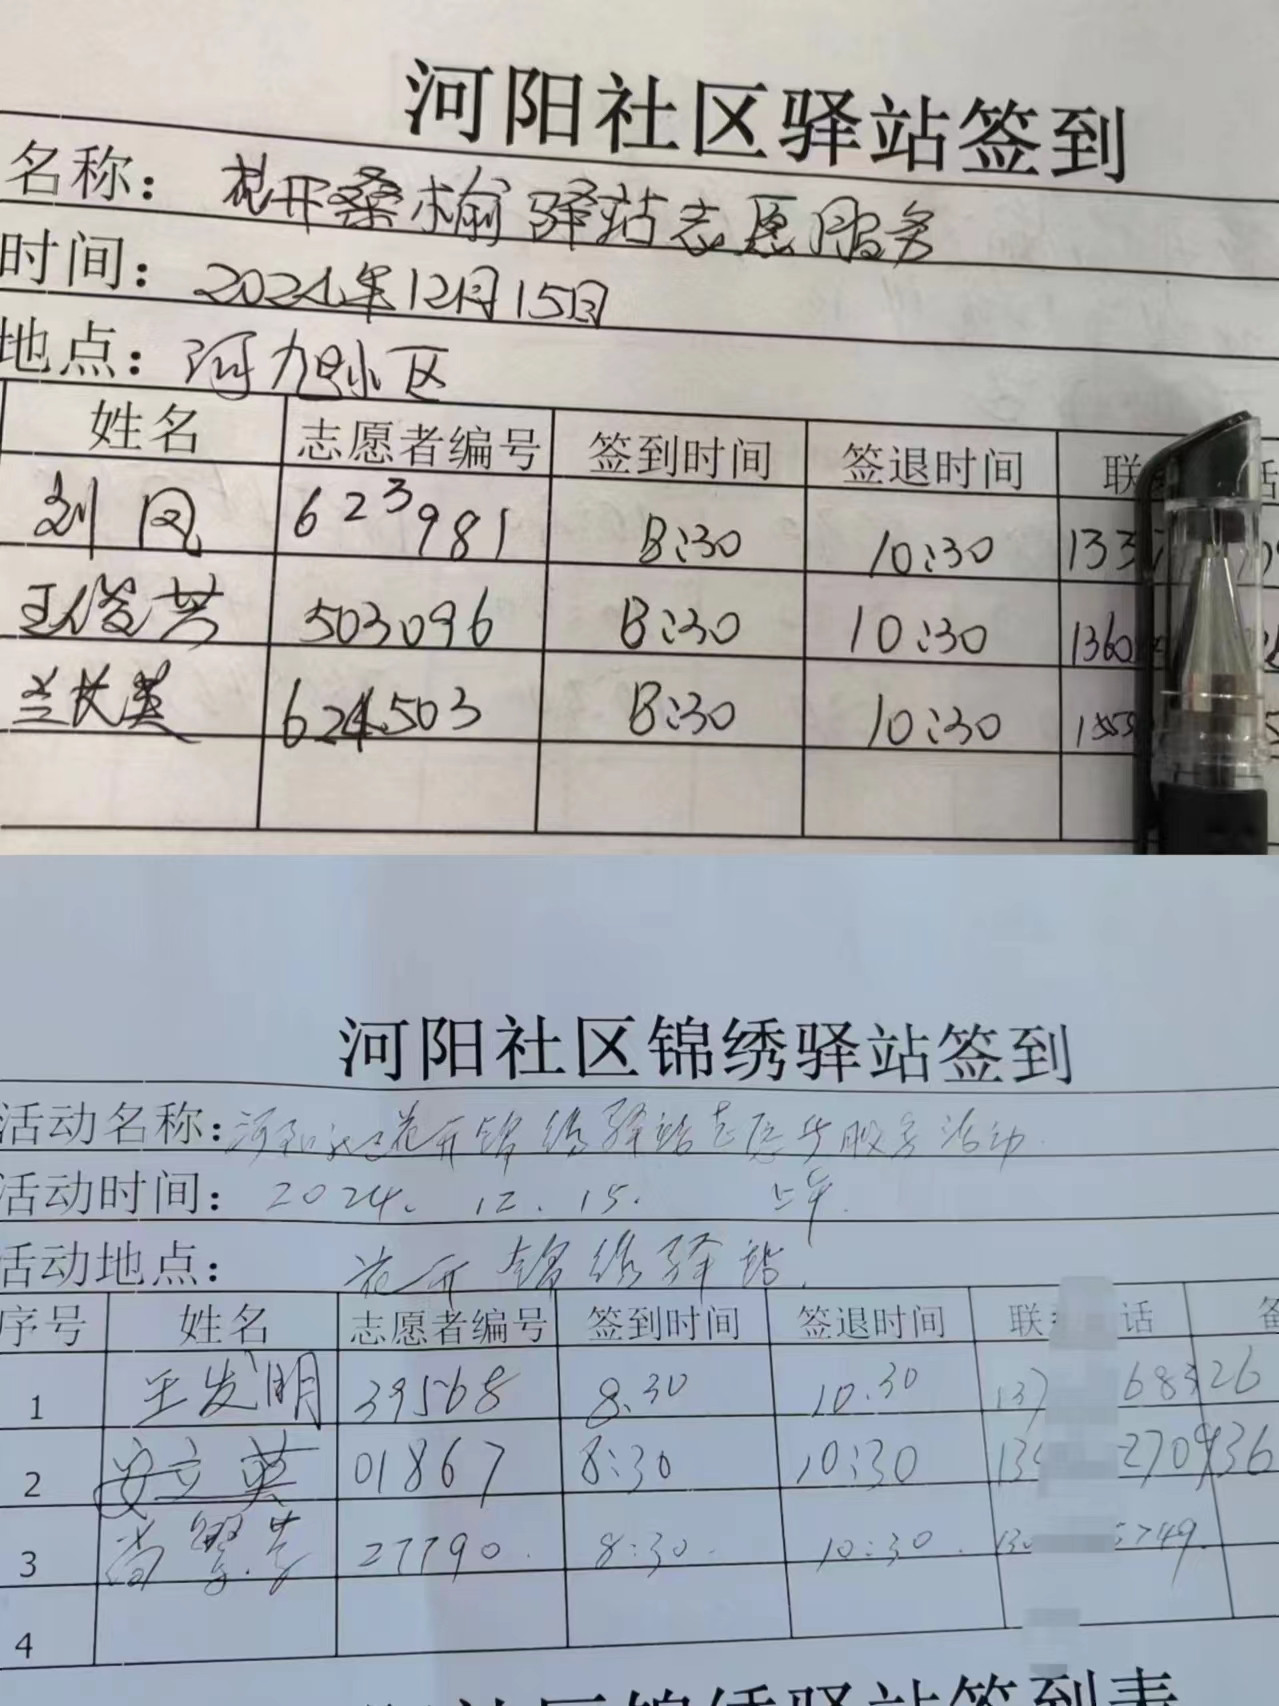 河阳社区驿站签到
名称：花开桑榆驿站志愿服务
时间：2024年12月15日
地点：河旭小区
姓名 志愿者编号 签到时间 签退时间 联 话
刘 凤 623981 8:30 10:30 133
王俊芸 503096 8:30 10:30 1360
兰长英 624503 8:30 10:30
河阳社区锦绣驿站签到
活动名称：河阳社区花开锦绣驿站志愿者服务活动
活动时间：2024. 12. 15. 上午.
活动地点：花开锦绣驿站.
序号 姓名 志愿者编号 签到时间 签退时间 联 话 备
1 王发明 39568 8.30 10.30 137 68326
2 安立英 01867 8:30 10:30 13 270936
3 27790. 8:30. 10:30. 130 5749.
4
社区锦绣驿站签到表